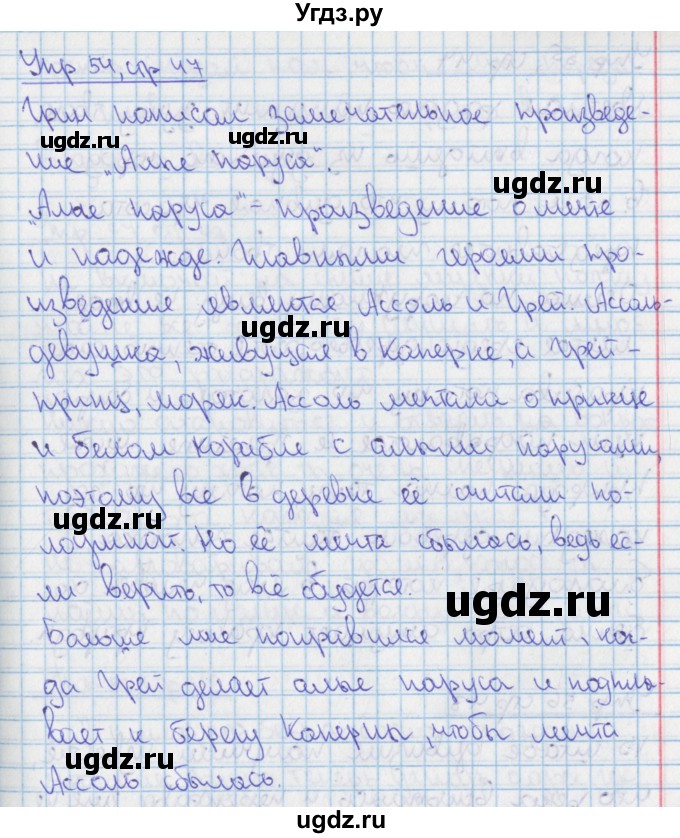 Угдз.ру
Упр 54, стр 47
Грин написал замечательное произведе-
ние „Алые паруса".
„Алые паруса" - произведение о мечте
и надежде. Главными героями про-
изведения являются Ассоль и Грей. Ассоль-
девушка, живущая в Каперне, а Грей -
принц, моряк. Ассоль мечтала о принце
и белом корабле с алыми парусами,
поэтому все в деревне её считали по-
лоумной. Но её мечта сбылась, ведь ес-
ли верить, то всё сбудется.
Больше мне понравился момент, ког-
да Грей делает алые паруса и подплы-
вает к берегу Каперны, чтобы мечта
Ассоль сбылась.
ugdz.ru
ugdz.ru
ugdz.ru
ugdz.ru
ugdz.ru
ugdz.ru
ugdz.ru
ugdz.ru
ugdz.ru